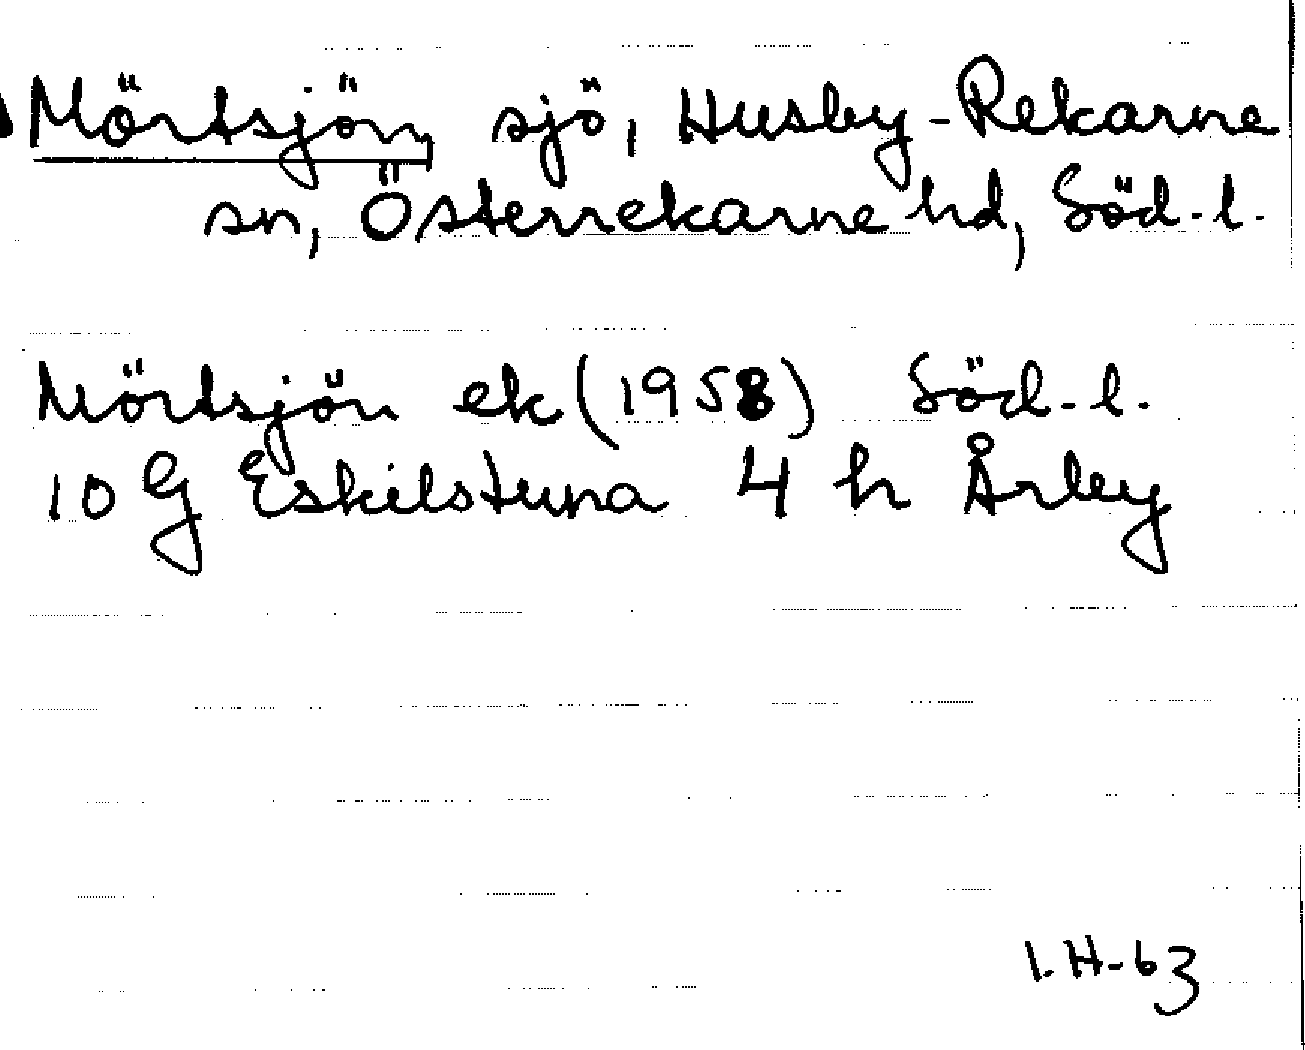 Mörtsjön, sjö, Husby-Rekarne
sn, Österrekarne hd, Söd-l.
Mörtsjön ek (1958) Söd-l.
10 G Eskilstuna 4 h Årby
I.H-63